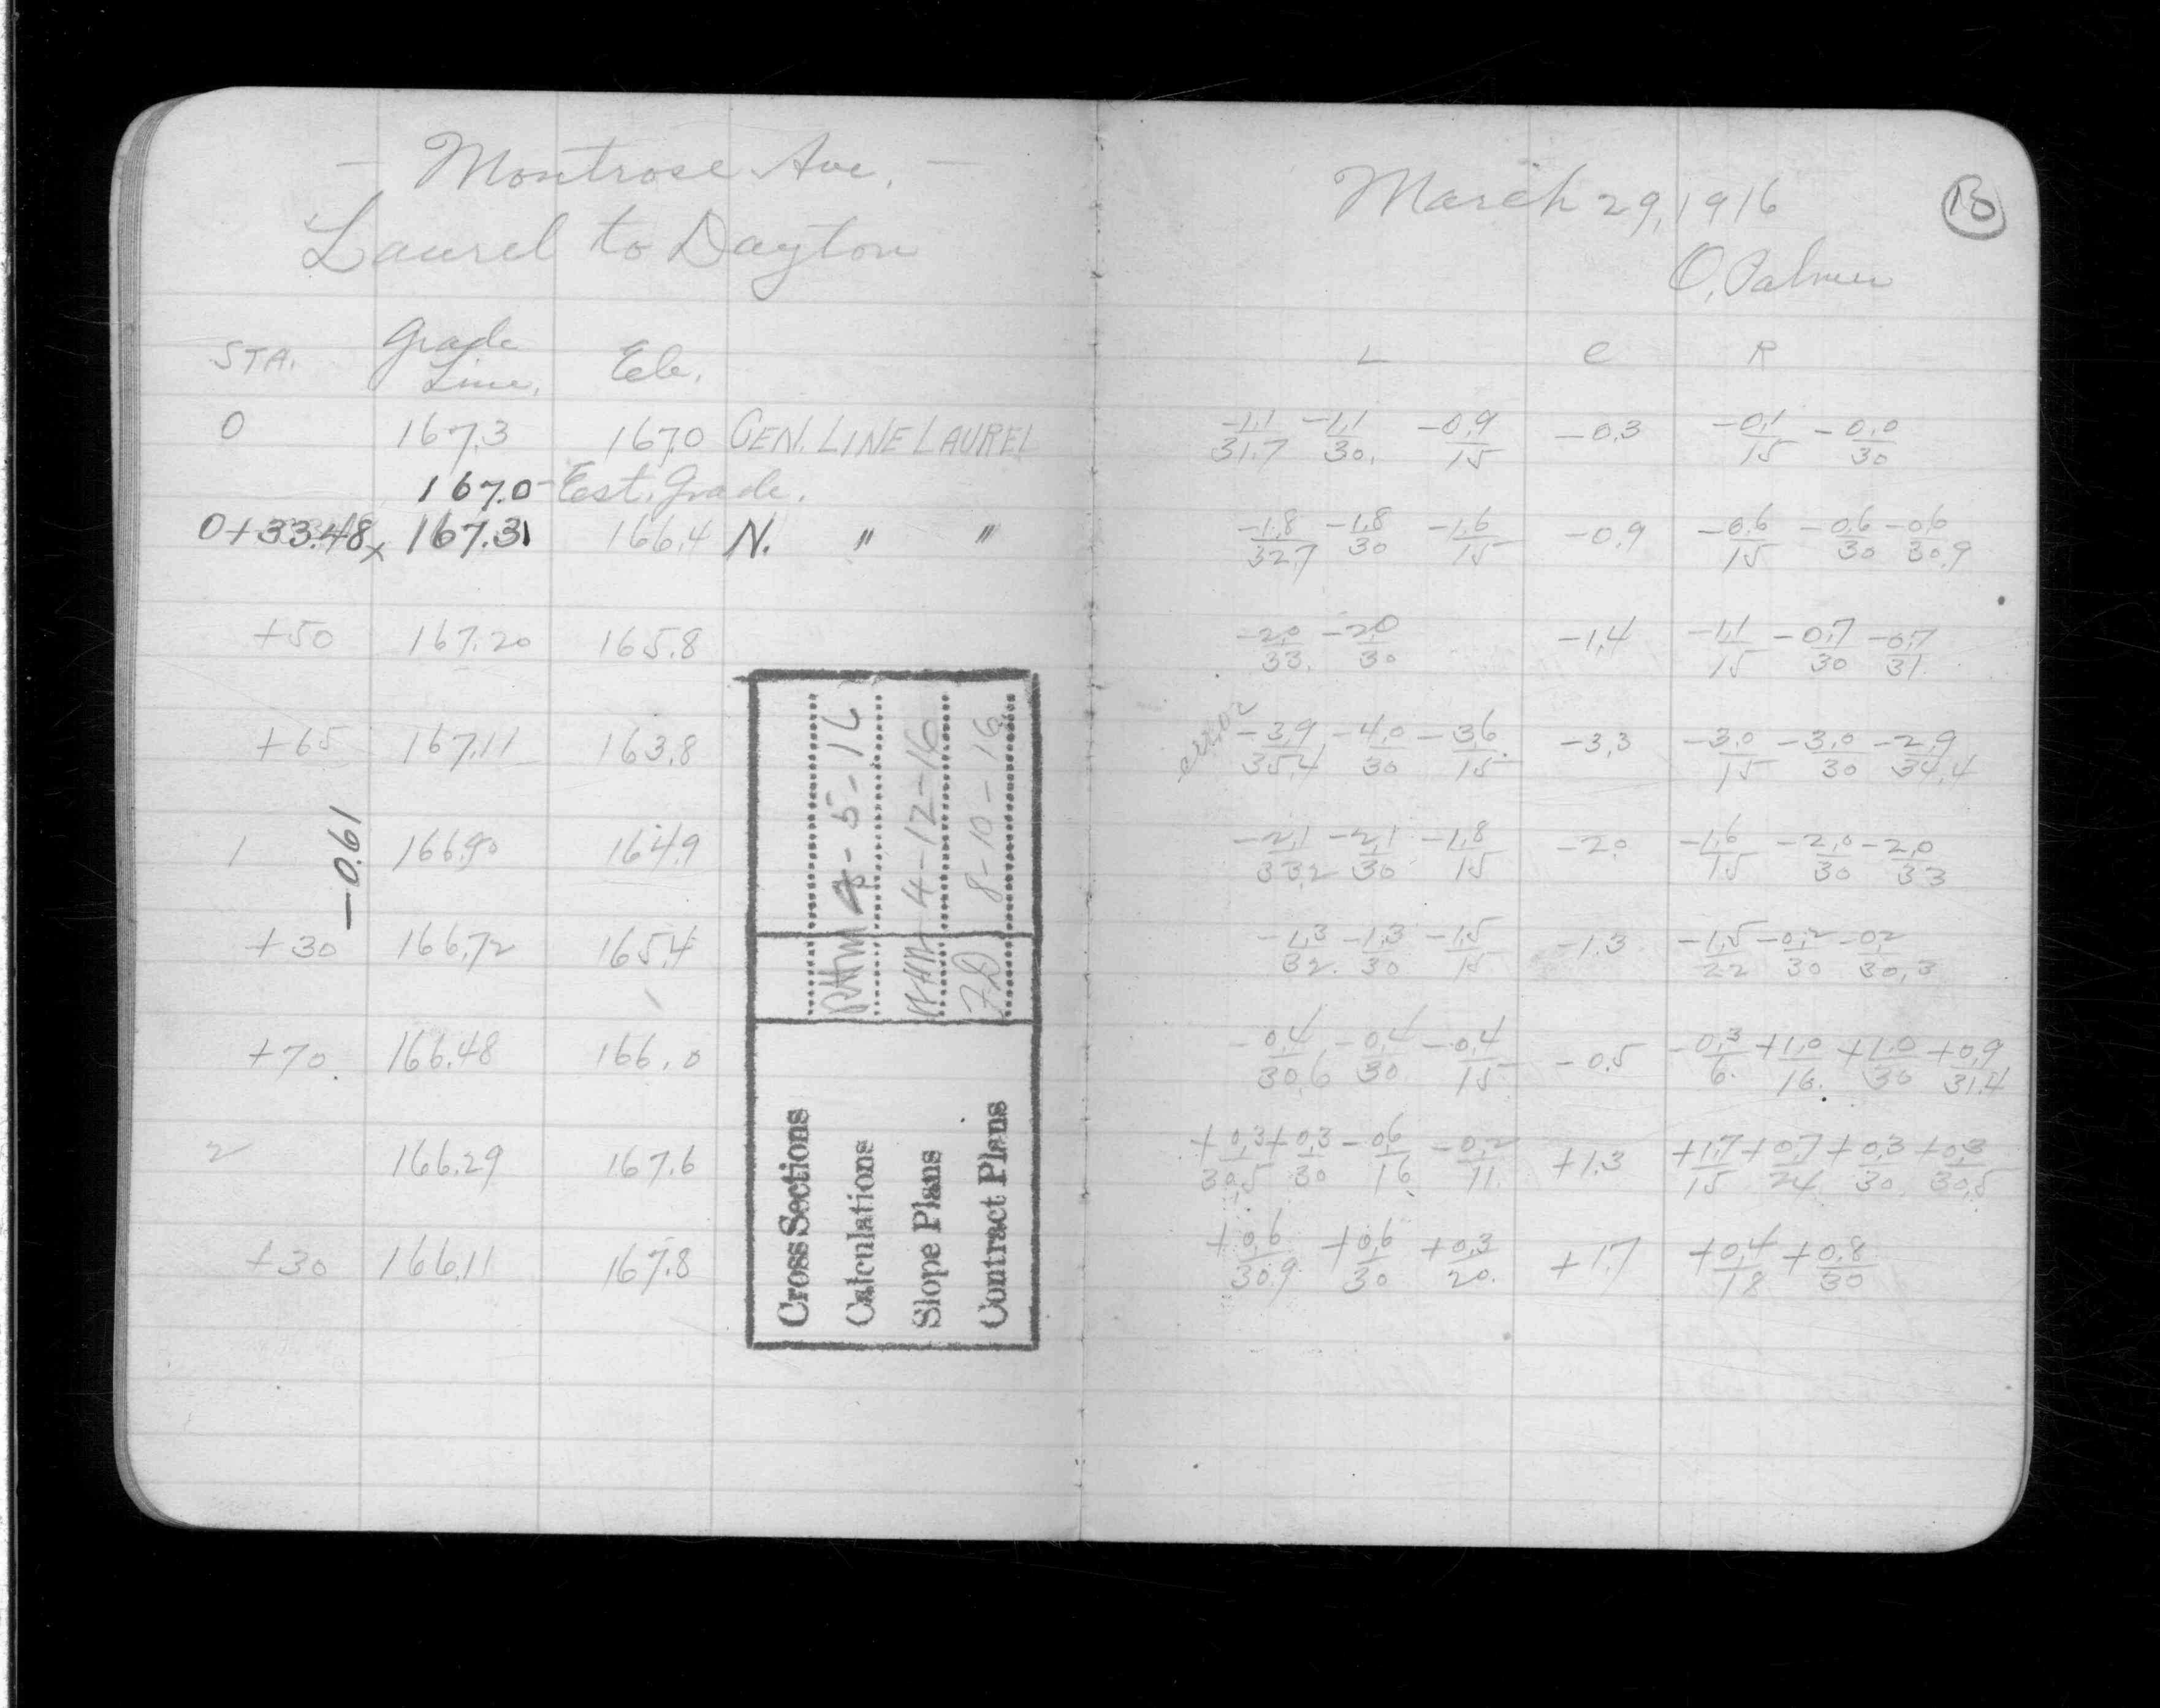 — Montrose Ave. —
Laurel to Dayton
STA. Grade Line. Ele.
0 167.3 167.0 CEN. LINE LAUREL
167.0 - Est. Grade.
0+33.48x 167.31 166.4 N. " "
+50 167.20 165.8
+65 167.11 163.8
1 166.90 164.9
-0.61
+30 166.72 165.4
+70. 166.48 166.0
2 166.29 167.6
+30 166.11 167.8
Cross Sections
Calculations RHM 4-5-16
Slope Plans 4-12-16
Contract Plans F.D 8-10-16
March 29, 1916
O. Palmer
L C R
-1.1/31.7 -1.1/30. -0.9/15 -0.3 -0.1/15 -0.0/30
-1.8/32.7 -1.8/30 -1.6/15 -0.9 -0.6/15 -0.6/30 -0.6/30.9
-2.0/33. -2.0/30 -1.4 -1.1/15 -0.7/30 -0.7/31.
error -3.9/35.4 -4.0/30 -3.6/15. -3.3 -3.0/15 -3.0/30 -2.9/34.4
-2.1/33.2 -2.1/30 -1.8/15 -2.0 -1.6/15 -2.0/30 -2.0/33
-1.3/32. -1.3/30 -1.5/15 -1.3 -1.5/22 -0.2/30 -0.2/30.3
-0.4/30.6 -0.4/30 -0.4/15 -0.5 -0.3/6. +1.0/16. +1.0/30 +0.9/31.4
+0.3/30.5 +0.3/30 -0.6/16 -0.2/11. +1.3 +1.7/15 +0.7/24 +0.3/30. +0.3/30.5
+0.6/30.9 +0.6/30 +0.3/20. +1.7 +0.4/18 +0.8/30